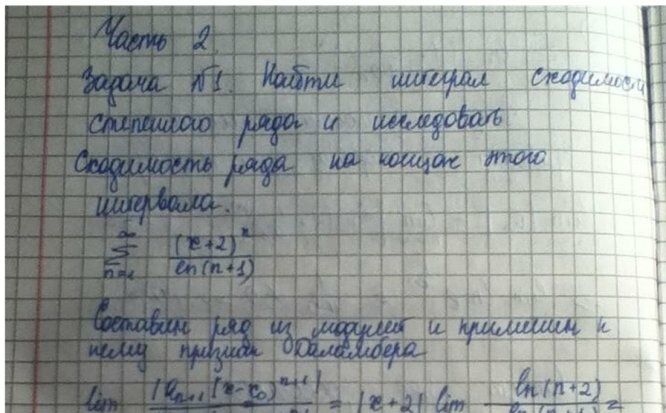 Часть 2.
Задача №1. Найти интеграл сходимости
степенного ряда и исследовать
Сходимость ряда на концах этого
интервала.
∞
Σ (x+2)^n / ln(n+1)
n=1
Составим ряд из модулей и применим к
нему признак Даламбера
lim |a_{n+1} (x-x_0)^{n+1}| = |x+2| lim ln(n+2) =